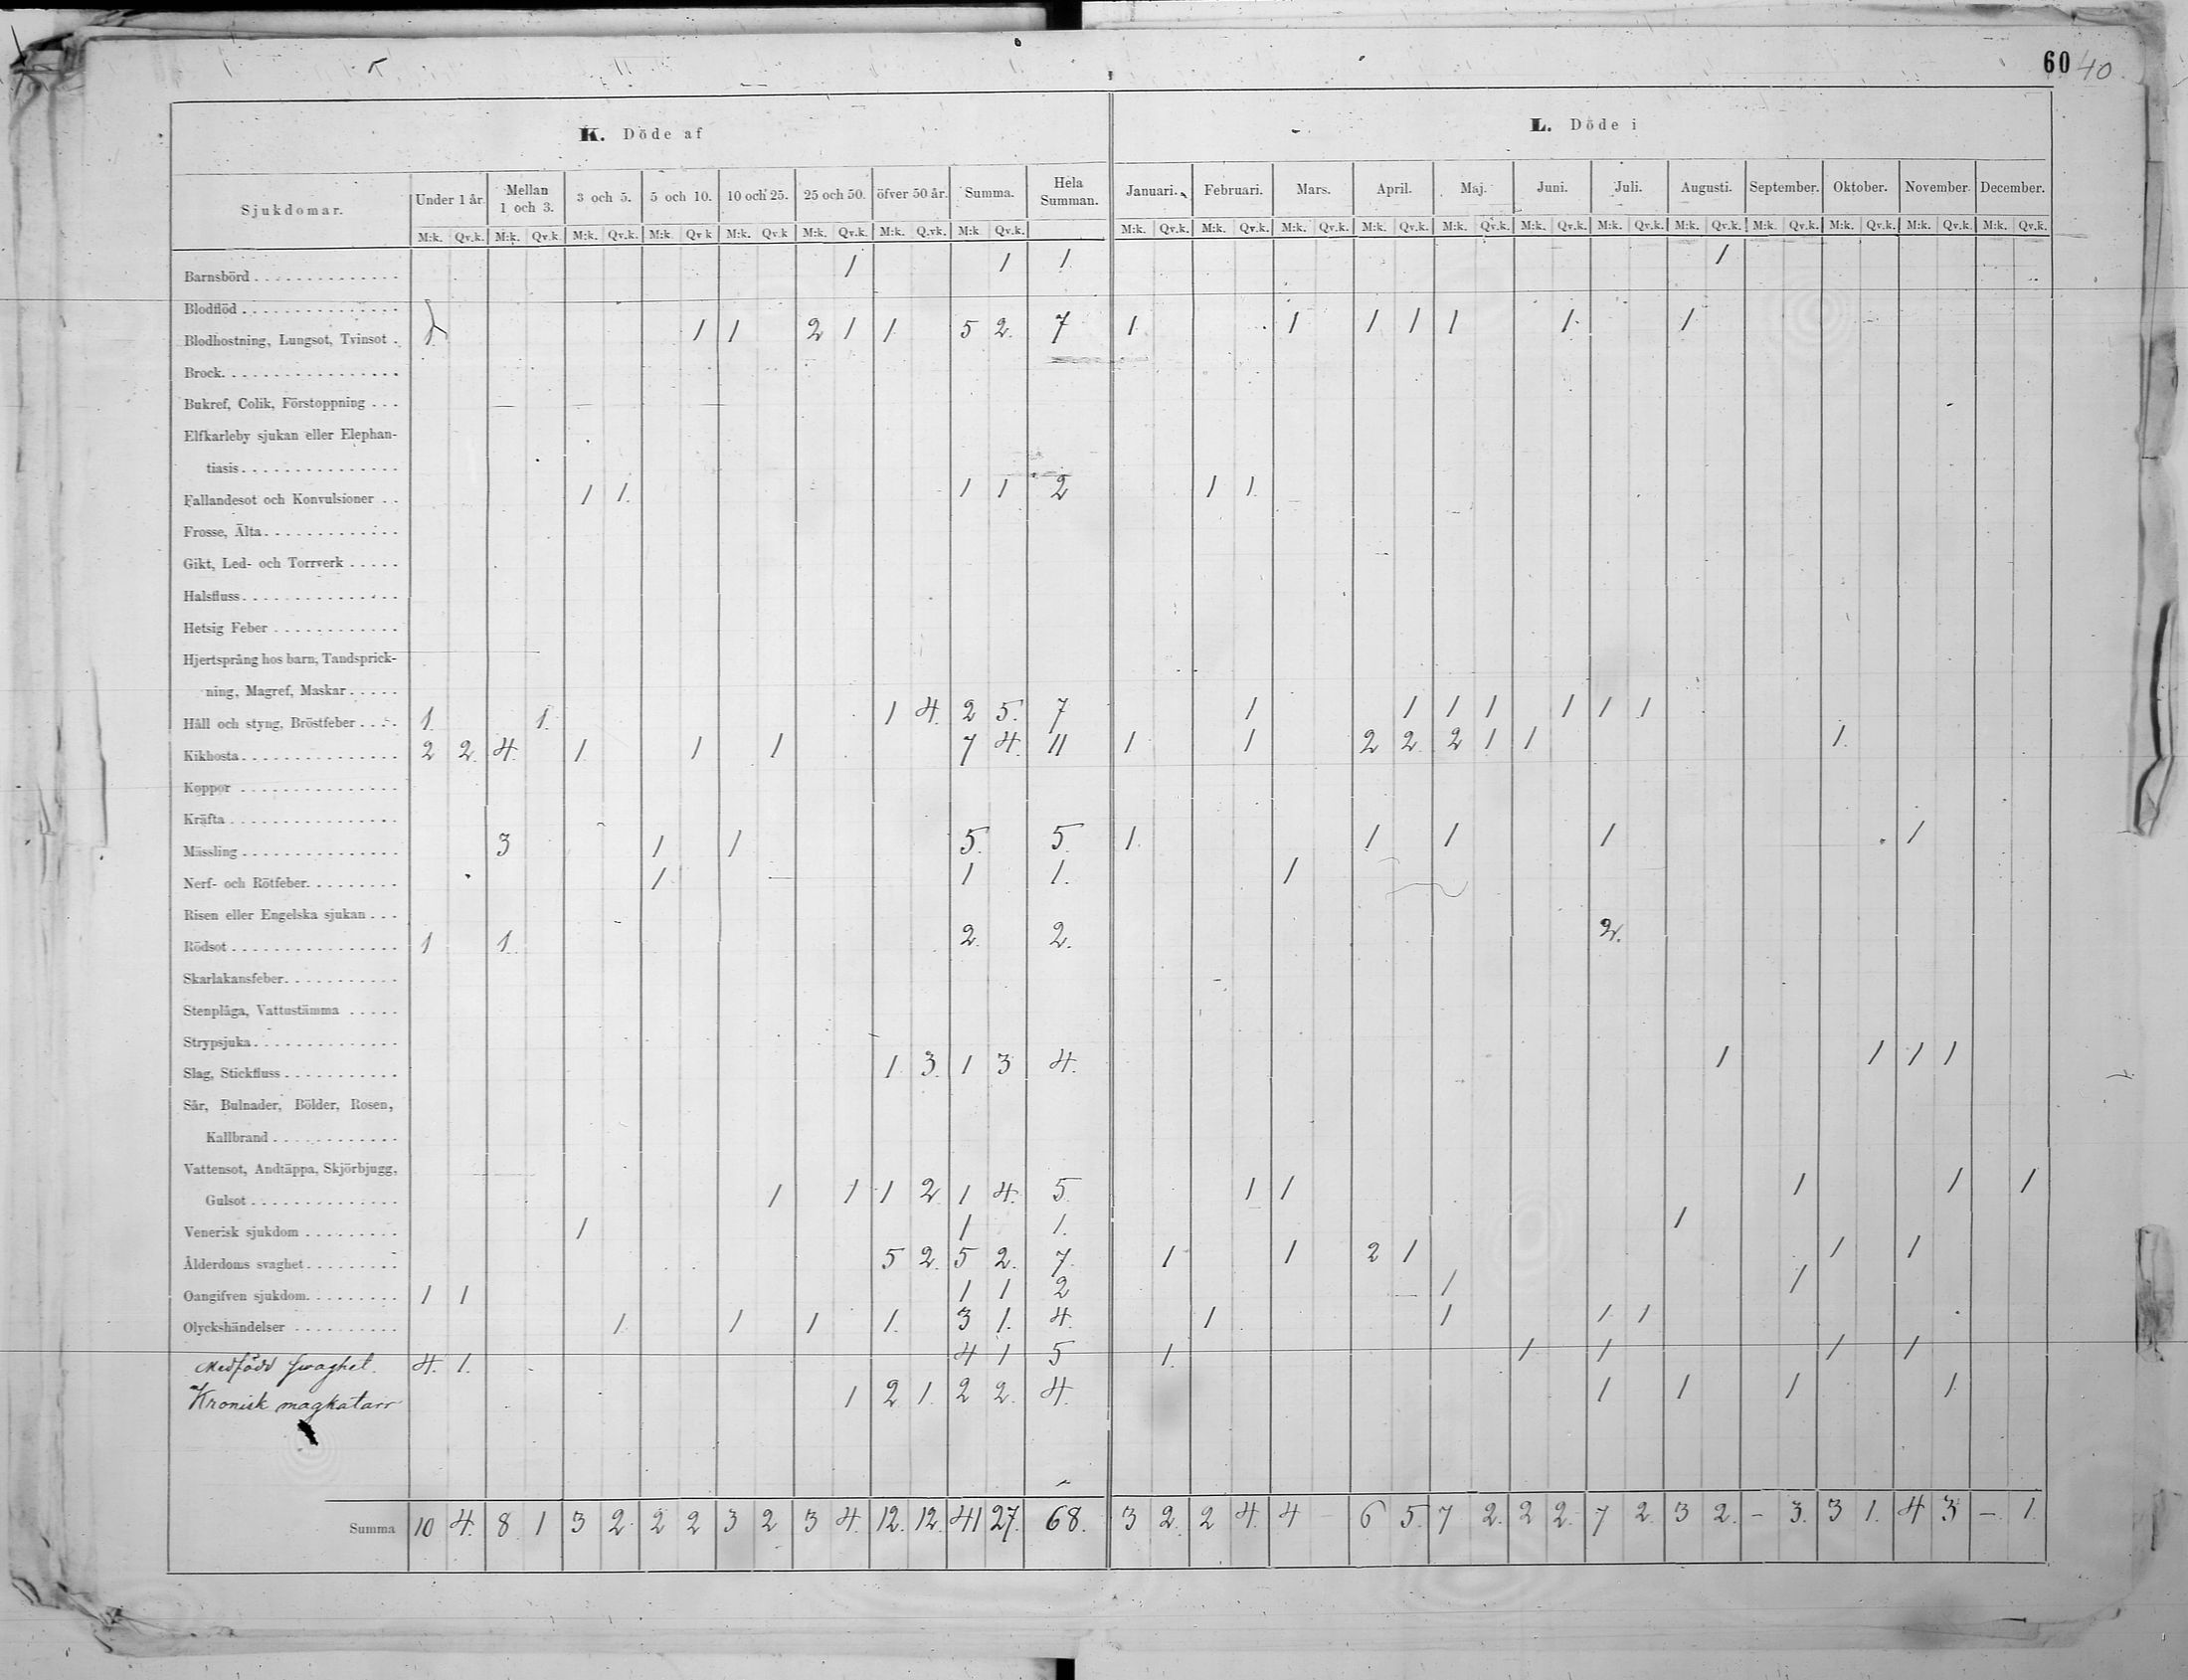 60 40
K. Döde af
L. Döde i
Sjukdomar. Under 1 år. Mellan 1 och 3. 3 och 5. 5 och 10. 10 och 25. 25 och 50. öfver 50 år. Summa. Hela Summan. Januari. Februari. Mars. April. Maj. Juni. Juli. Augusti. September. Oktober. November. December.
M:k. Qv.k. M:k. Qv.k. M:k. Qv.k. M:k. Qv k M:k. Qv.k M:k. Qv.k. M:k. Q.vk. M:k Qv.k. M:k. Qv.k. M:k. Qv.k. M:k. Qv.k. M:k. Qv.k. M:k. Qv.k. M:k. Qv.k. M:k. Qv.k. M:k. Qv.k. M:k. Qv.k. M:k. Qv.k. M:k. Qv.k. M:k. Qv.k.
Barnsbörd 1 1 1 1
Blodflöd
Blodhostning, Lungsot, Tvinsot 1 1 1 2 1 1 5 2. 7 1 1 1 1 1 1 1
Brock
Bukref, Colik, Förstoppning
Elfkarleby sjukan eller Elephan-
tiasis
Fallandesot och Konvulsioner 1 1. 1 1 2 1 1
Frosse, Älta
Gikt, Led- och Torrverk
Halsfluss
Hetsig Feber
Hjertsprång hos barn, Tandsprick-
ning, Magref, Maskar
Håll och styng, Bröstfeber 1 1. 1 4. 2 5. 7 1 1 1 1 1 1 1
Kikhosta 2 2. 4. 1 1 1 7 4. 11 1 1 2 2. 2 1 1 1.
Koppor
Kräfta
Mässling 3 1 1 5. 5. 1. 1 1 1 1
Nerf- och Rötfeber. 1 1 1. 1
Risen eller Engelska sjukan
Rödsot 1 1. 2. 2. 2.
Skarlakansfeber
Stenplåga, Vattustämma
Strypsjuka
Slag, Stickfluss 1 3. 1 3 4. 1 1 1 1
Sår, Bulnader, Bölder, Rosen,
Kallbrand
Vattensot, Andtäppa, Skjörbjugg,
Gulsot 1 1 1 2. 1 4. 5. 1 1 1 1 1
Venerisk sjukdom 1 1 1. 1
Ålderdoms svaghet 5 2. 5 2. 7. 1 1 2 1 1 1
Oangifven sjukdom. 1 1 1 1 2 1 1
Olyckshändelser 1. 1 1 1. 3 1. 4. 1 1 1 1
Medfödd svaghet. 4. 1. 4 1 5 1. 1 1 1 1
Kronisk magkatarr 1 2 1. 2 2. 4. 1 1 1 1
Summa 10 4. 8 1 3 2. 2 2 3 2 3 4. 12. 12. 41 27. 68. 3 2. 2 4. 4 – 6 5. 7 2. 2 2. 7 2. 3 2. – 3. 3 1. 4 3 –. 1.